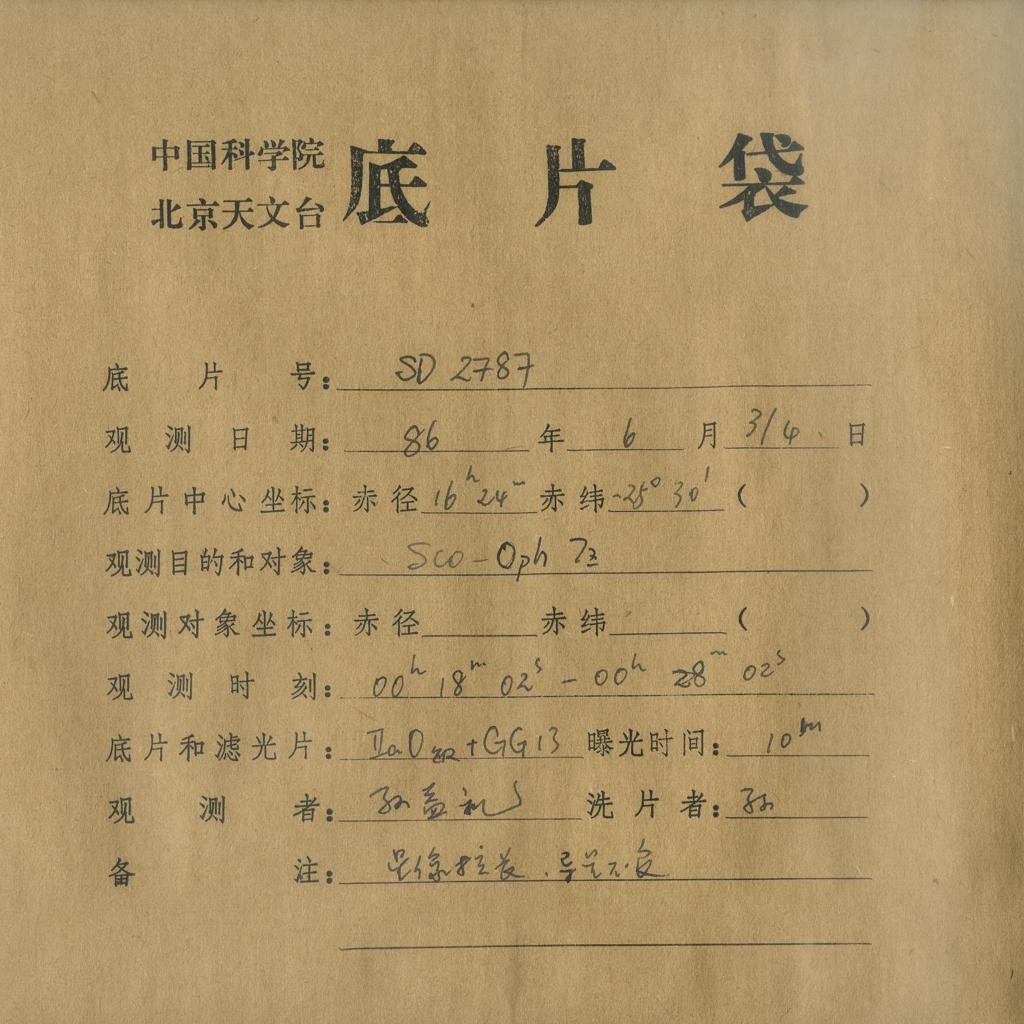 中国科学院
北京天文台
底片袋
底片号：SD 2787
观测日期：86年6月3/4日
底片中心坐标：赤径16h24m赤纬-25°30′（ ）
观测目的和对象：Sco-Oph 区
观测对象坐标：赤径 赤纬 （ ）
观测时刻：00h 18m 02s - 00h 28m 02s
底片和滤光片：IIaO敏+GG13 曝光时间：10m
观测者：孙益礼 洗片者：孙
备注：星像拉长．导星不良